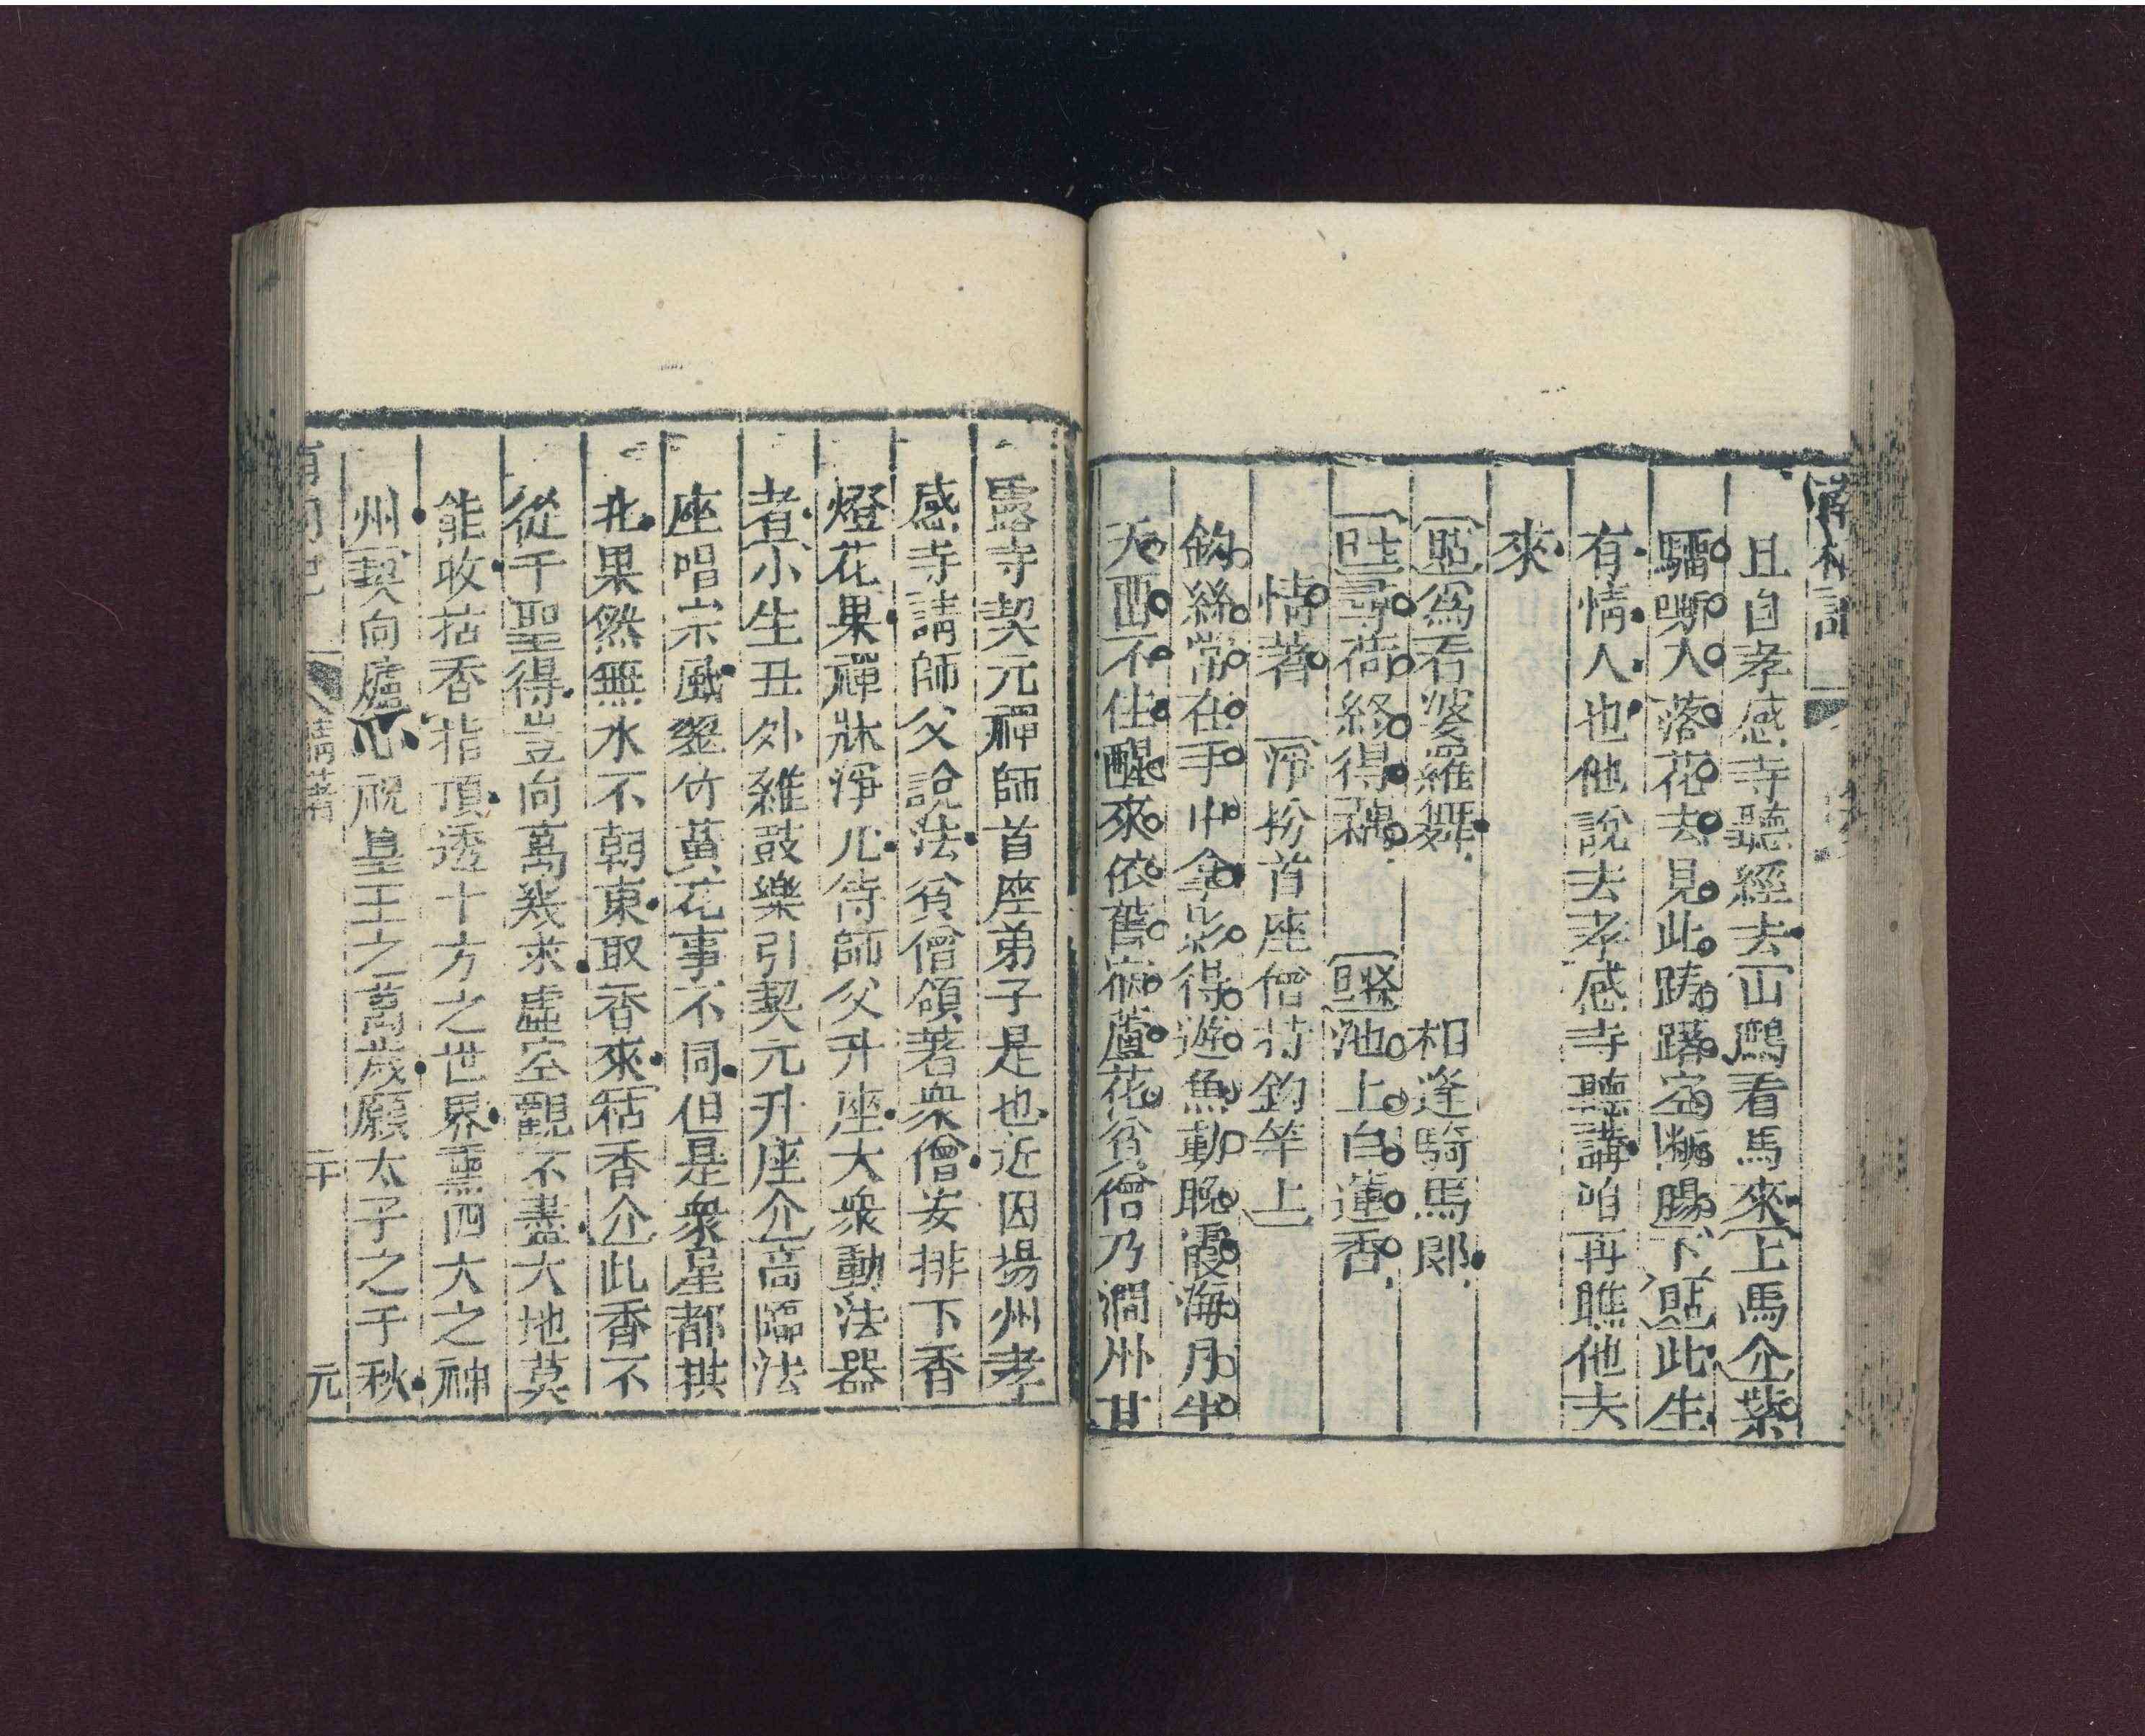 南柯記
且自孝感寺聽經去山鷓看馬來上馬介紫
騮嘶入落花去見此踌躇空斷腸下貼此生
有情人也他說去孝感寺聽講咱再瞧他去
來
貼為看婆羅舞 相逢騎馬郎
旦尋荷終得藕 池上白蓮香
情著 淨扮首座僧持釣竿上
鉤絲常在手中拿影得遊魚動晚霞海月半
天留不住醒來依舊宿蘆花貧僧乃潤州甘
露寺契元禪師首座弟子是也近因揚州孝
感寺請師父說法貧僧領著衆僧安排下香
燈花果禪牀淨几待師父升座大衆動法器
者小生丑外雜鼓樂引契元升座介高臨法
座唱宗風翠竹黃花事不同但是衆星都拱
北果然無水不朝東取香來拈香介此香不
從千聖得豈向萬幾求虛空觀不盡大地莫
能收拈香指頂透十方之世界熏四大之神
州契向爐心祝皇王之萬歲願太子之千秋
南柯記 情著 二十 元